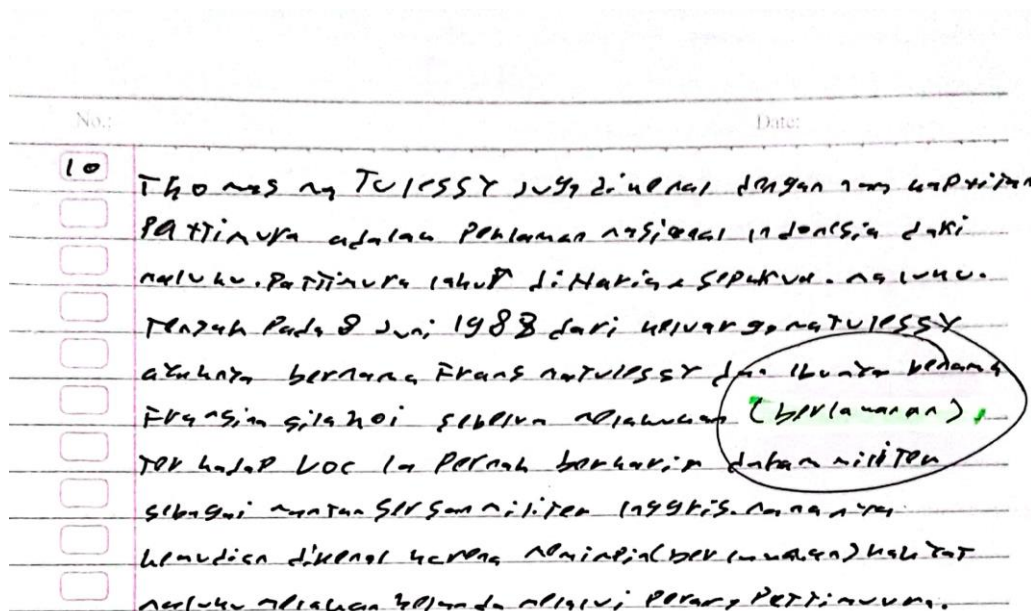 No.: Date:
10
Thomas ma Tulessy juga dikenal dengan nama kapitan
Pattimura adalah Pahlawan nasional indonesia dari
maluku. Pattimura lahir di Haria, sepakua. maluku.
Tengah Pada 8 Juni 1988 dari keluarga maTulessy
ayahnya bernama Frans maTulessy dan ibunya benama
Fransina silahoi sebelum melakukan (berlawanan).
Terhadap VOC Ia Pernah berkarir dalam militer
sebagai mantan sersan militer Inggris. namanya
kemudian dikenal karena memimpin (berlawanan) rakyat
maluku melawan belanda melalui Perang Pattimura.